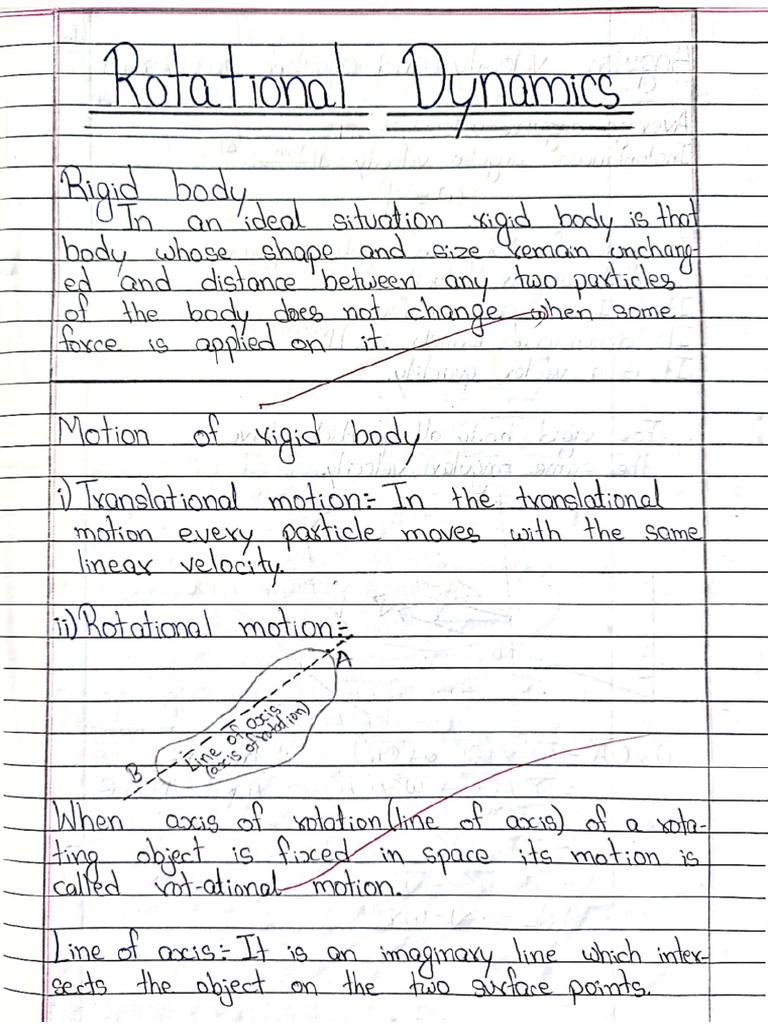 Rotational Dynamics
Rigid body
In an ideal situation rigid body is that
body whose shape and size remain unchang-
ed and distance between any two particles
of the body does not change when some
force is applied on it.
Motion of rigid body
i) Translational motion:- In the translational
motion every particle moves with the same
linear velocity.
ii) Rotational motion:-
A
Line of axis
(axis of rotation)
B
When axis of rotation (line of axis) of a rota-
ting object is fixced in space its motion is
called rot-ational motion.
Line of axis:- It is an imaginary line which inter-
sects the object on the two surface points.